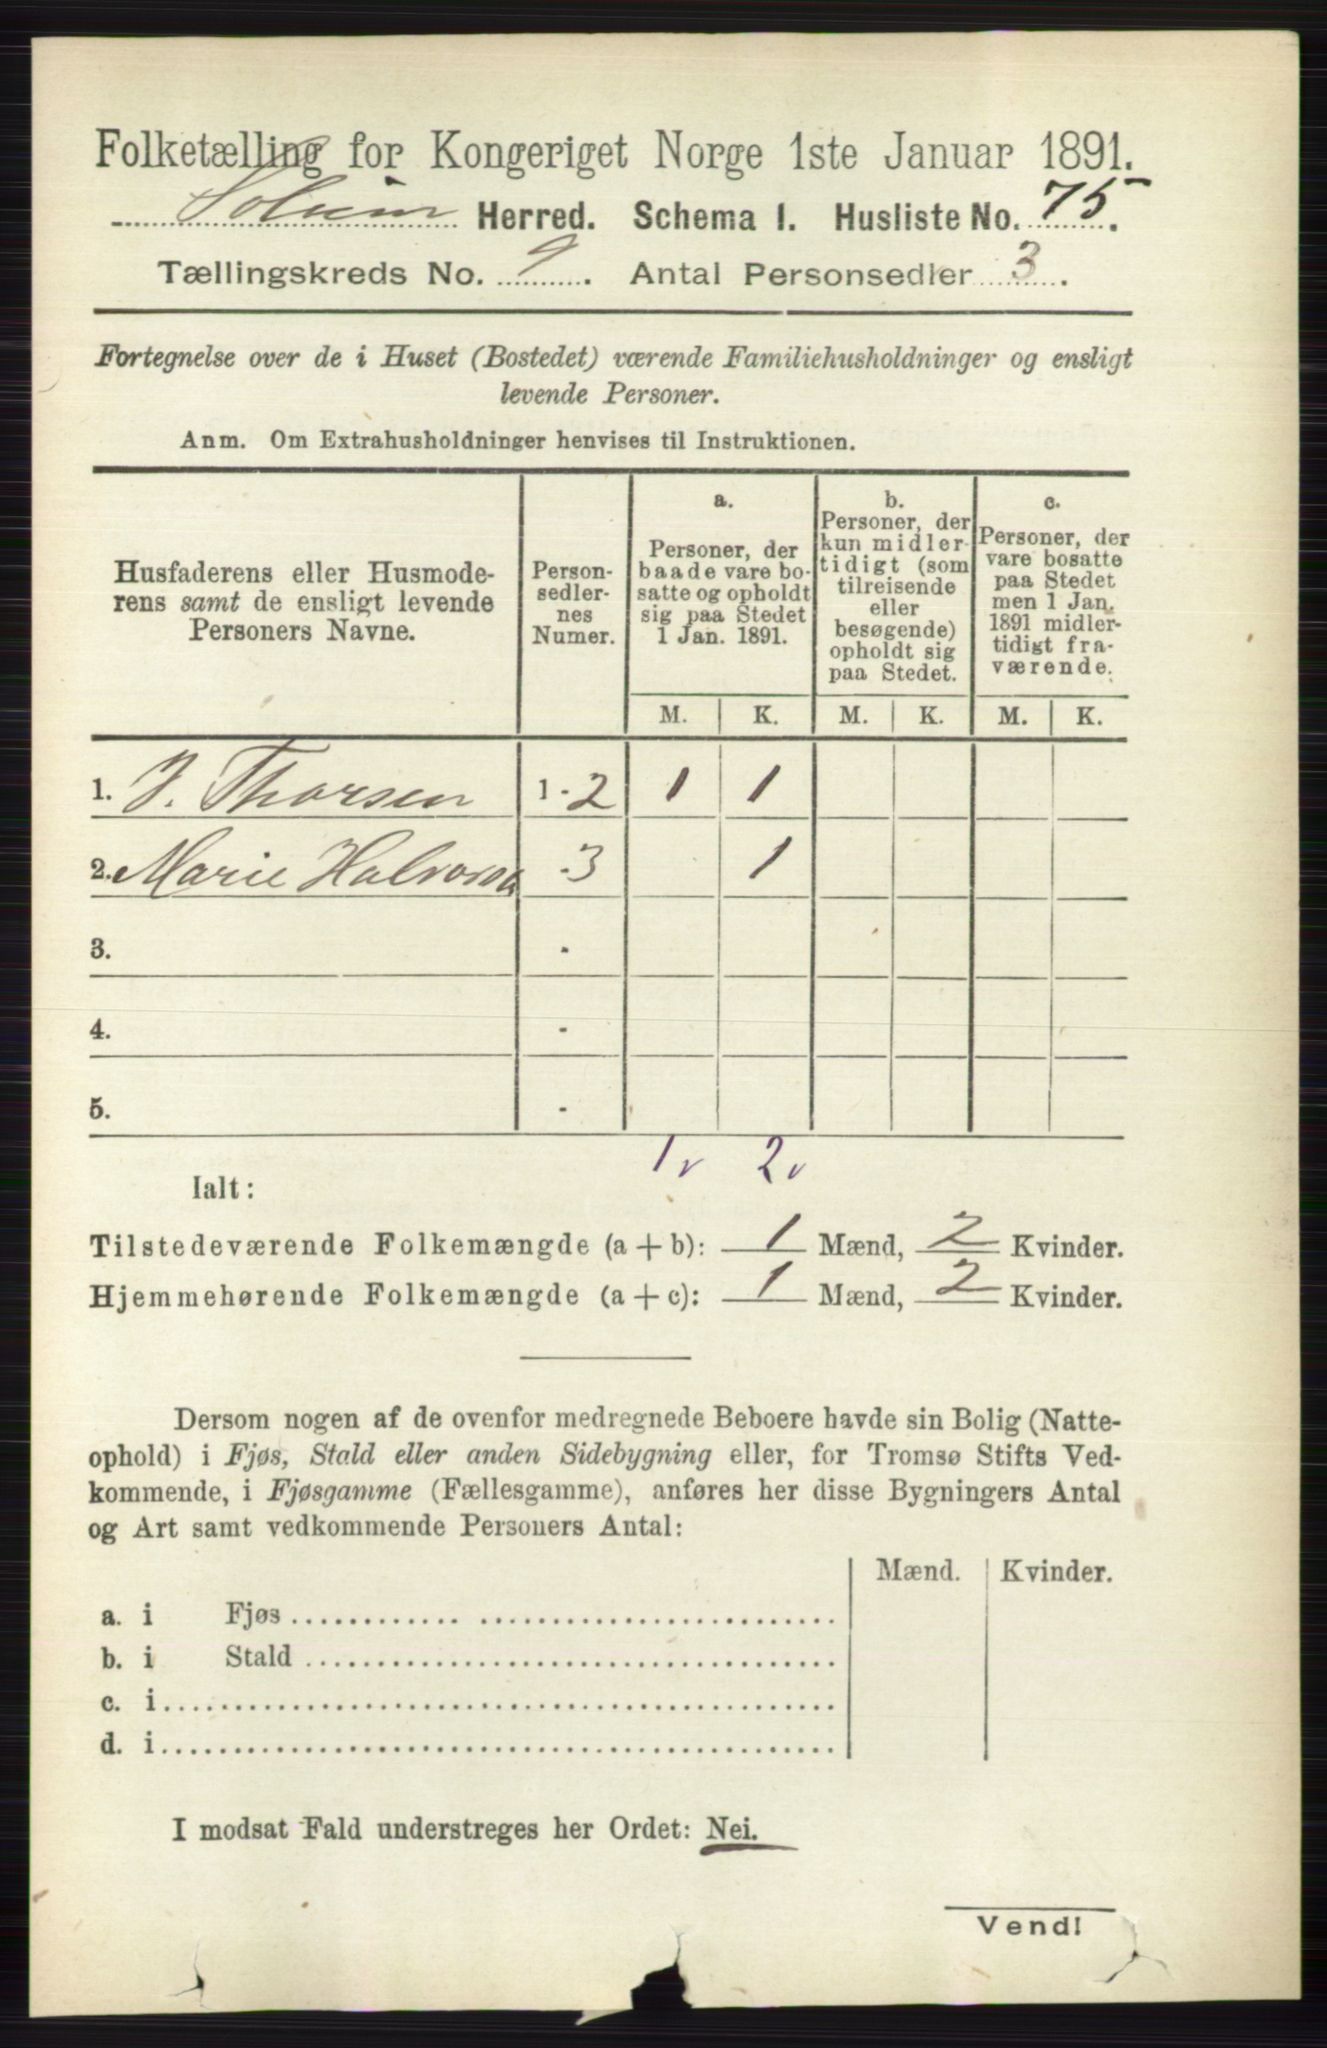 Folketælling for Kongeriget Norge 1ste Januar 1891.
Solum Herred. Schema 1. Husliste No. 75.
Tællingskreds No. 9. Antal Personsedler 3.
Fortegnelse over de i Huset (Bostedet) værende Familiehusholdninger og ensligt
levende Personer.
Anm. Om Extrahusholdninger henvises til Instruktionen.
Husfaderens eller Husmode-
rens samt de ensligt levende
Personers Navne.
Person-
sedler-
nes
Numer.
a.
Personer, der
baade vare bo-
satte og opholdt
sig paa Stedet
1 Jan. 1891.
b.
Personer, der
kun midler-
tidigt (som
tilreisende
eller
besøgende)
opholdt sig
paa Stedet.
c.
Personer, der
vare bosatte
paa Stedet
men 1 Jan.
1891 midler-
tidigt fra-
værende.
M. K. M. K. M. K.
1. J. Thorsen 1-2 1 1
2. Marie Halvorsen -3 1
3. -
4. -
5. -
1 v 2 v
Ialt:
Tilstedeværende Folkemængde (a + b): 1 Mænd, 2 Kvinder.
Hjemmehørende Folkemængde (a + c): 1 Mænd, 2 Kvinder.
Dersom nogen af de ovenfor medregnede Beboere havde sin Bolig (Natte-
ophold) i Fjøs, Stald eller anden Sidebygning eller, for Tromsø Stifts Ved-
kommende, i Fjøsgamme (Fællesgamme), anføres her disse Bygningers Antal
og Art samt vedkommende Personers Antal:
Mænd. Kvinder.
a. i Fjøs
b. i Stald
c. i
d. i
I modsat Fald understreges her Ordet: Nei.
Vend!